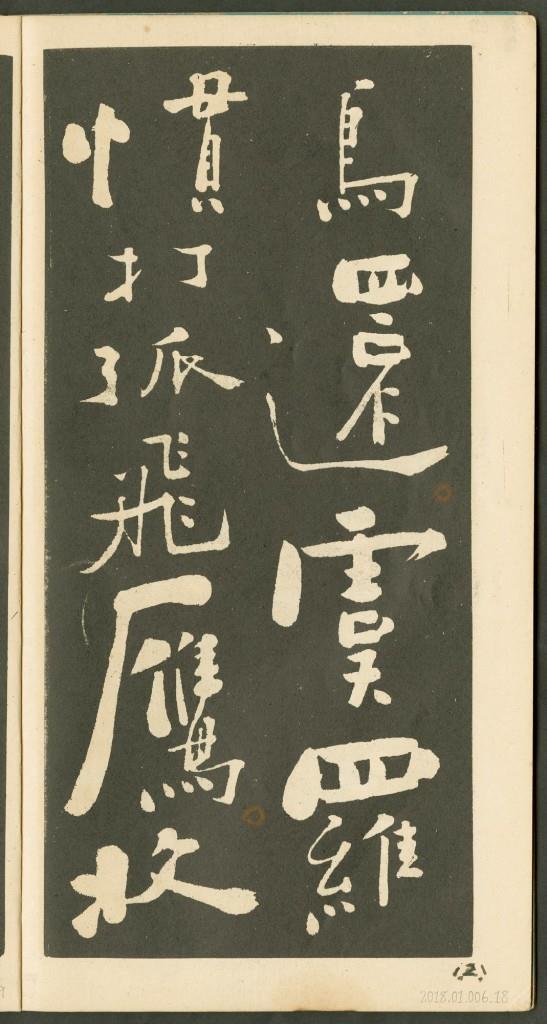 鳥還虞羅
慣打孤飛雁收
(2)
2018.01.006.18